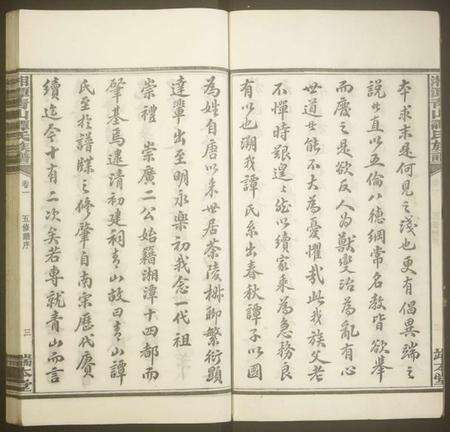 本求末是何見之淺也更有倡異端之
說世直以五倫八德綱常名教皆欲舉
而廢之是欲反人為獸變治為亂有心
世道世能不大為憂懼哉此我族父老
不憚時艱遑遑然以續家乘為急務良
有以也溯我譚氏系出春秋譚子以國
為姓自唐以來世居茶陵梆聊繁衍顯
達輩出至明永樂初我念一代祖
崇禮 崇廣二公始籍湘潭十四都而
肇基焉逮清初建祠青山故曰青山譚
氏至於譜牒之修肇自南宋歷代賡
續迄今十有二次矣若專就青山而言
湘潭青山譚氏族譜
卷一
五修譜序
三
端本堂